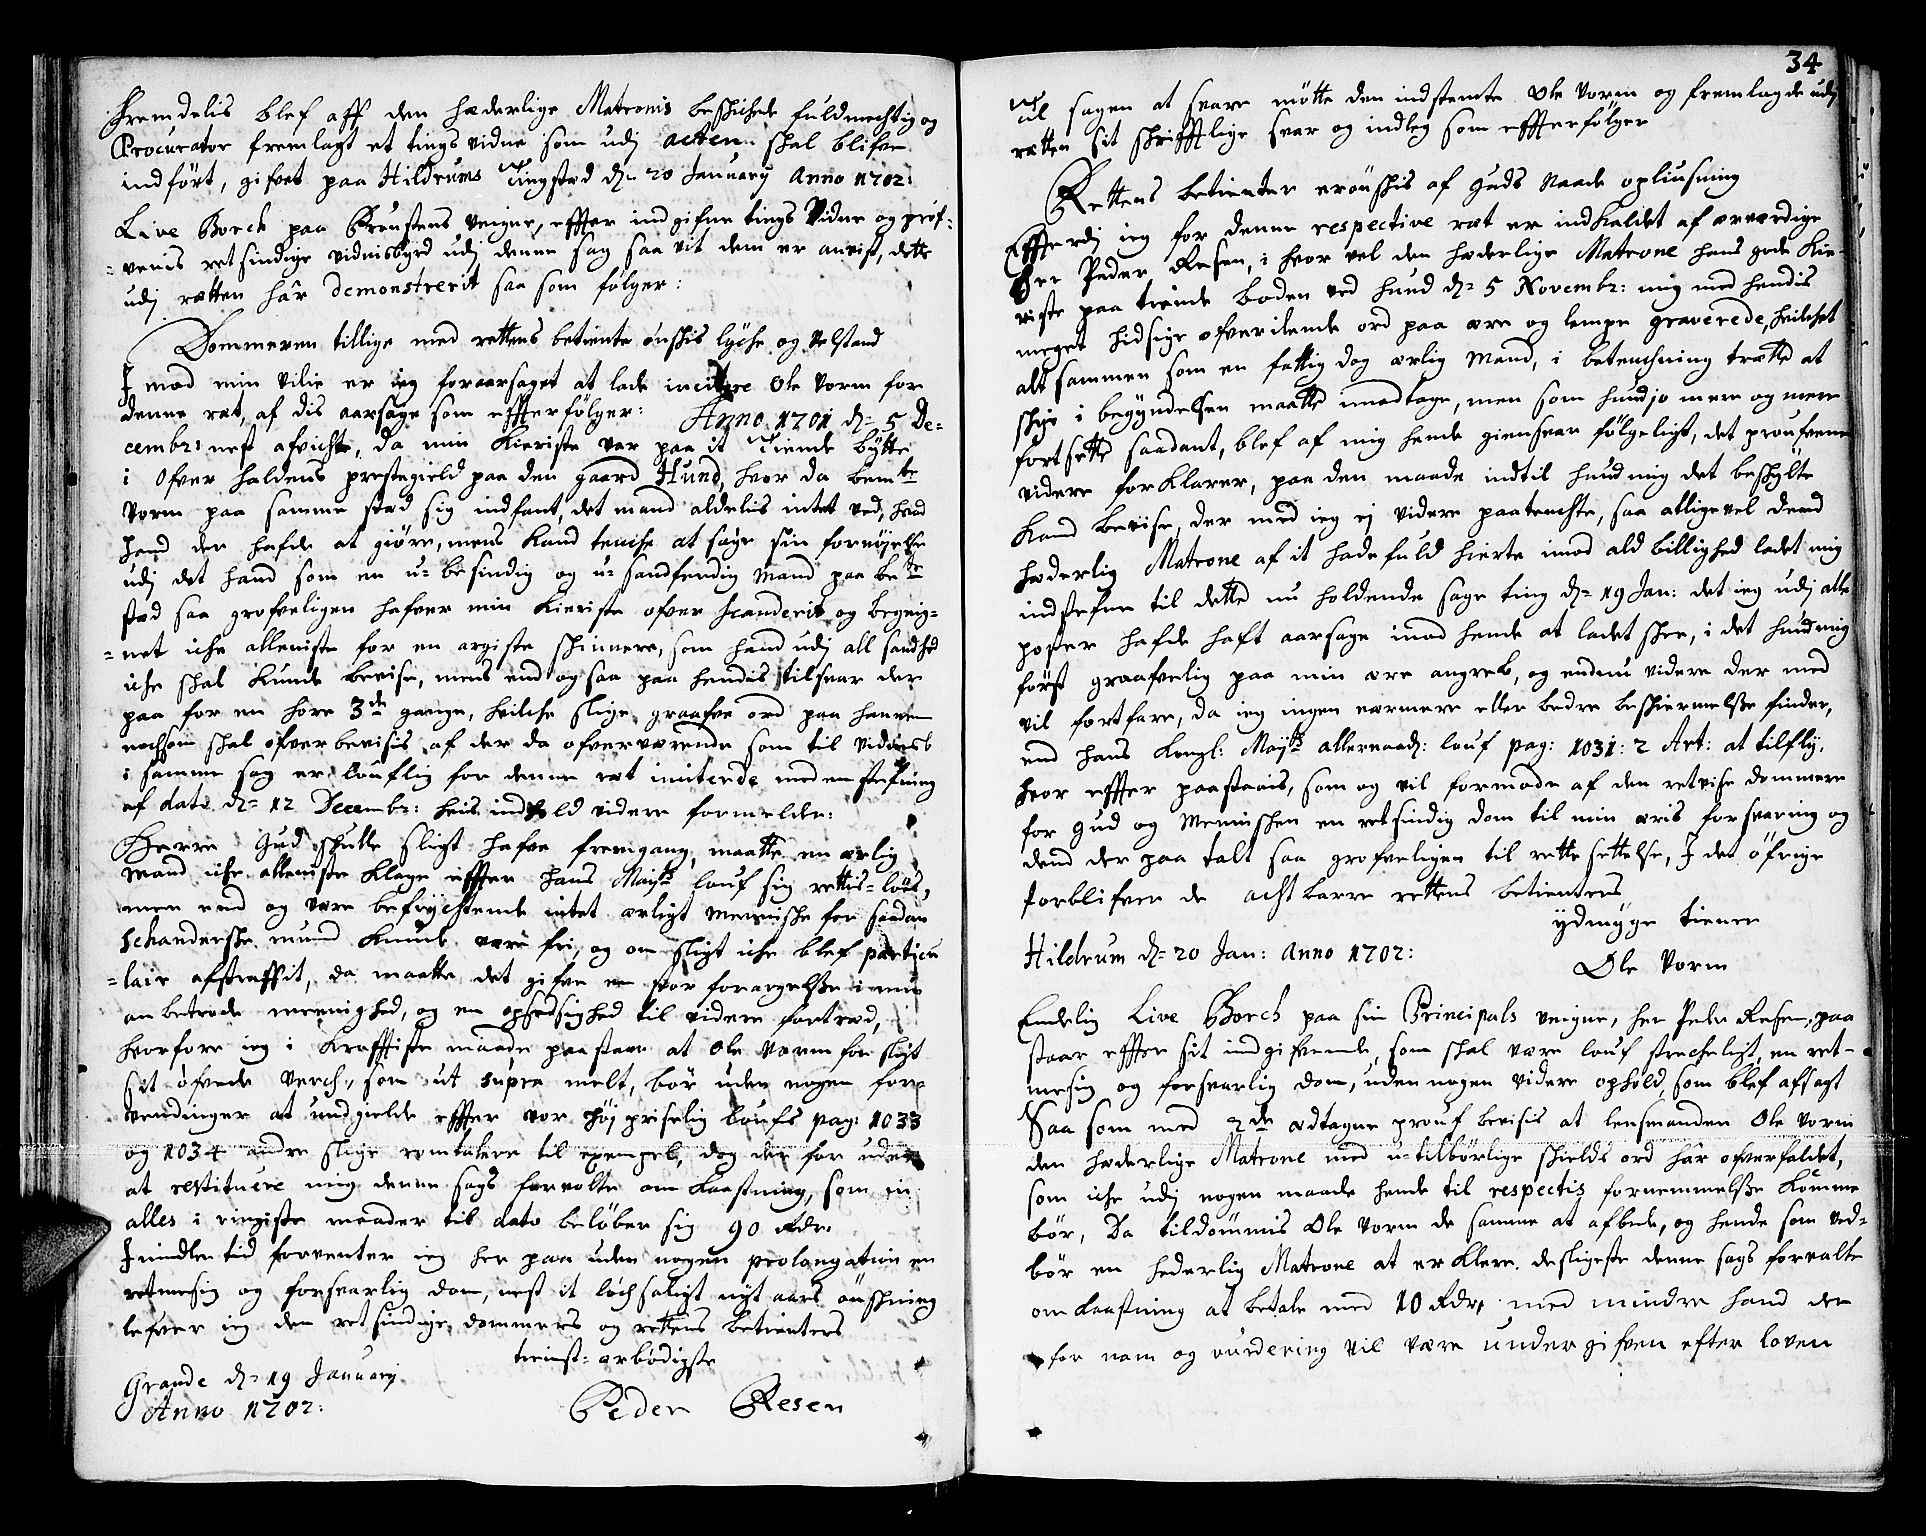 Fremdelis blef aff den hæderlige Matronis beskichede fuldmechtig og
Procurator fremlagt et tings vidne som udj acten skal blifve
indført, gifvet paa Hildrums Tingstæd d= 20 January Anno 1702:
Live Borch paa Proustens veigne, effter indgifne tings vidne og prof-
=venis retsindige vidnisbyrd udj denne sag saa vit dem er anvist, dette
udj rætten hâr demonstrerit saa som følger:
Dommeren tillige med rettens betiente ønskis lyche og velstand
J mod min vilie er ieg foraarsaget at lade incitere Ole Vorm for
denne ræt, af dis aarsage som effterfølger: Anno 1701 d= 5 De-
cembr: nest afvichte, da min Kieriste var paa it Tiende bytte
i Ofver haldens prestegield paa den gaard Hund, hvor da bemte
Vorm paa samme stæd sig indfant, det mand aldelis intet ved, hvad
hand der hafde at giøre, mens kand tenche at søge sin fornøyelse
udj det hand som en u-besindig og u-sandferdig mand paa bete
stæd saa grofveligen hafver min Kieriste ofver schanderit og begeig-
=net iche alleniste for en argiste skinnere, som hand udj all sandhed
iche skal kunde bevise, mens end og saa paa hendis tilsvar der
paa for en hore 3de gange, hvilche slige graafve ord paa hannem
nochsom skal ofverbevisis af der da ofverværende som til vidnesb
i samme sag er louflig for denne ræt citerede med en stefning
af dato d= 12 Decembr: hvis indhold videre formelder:
Herre Gud skulle sligt hafve fremgang, maatte en ærlig
mand iche alleniste klage effter hans Mayts louf sig rettis-løes,
men end og være befrychtende intet ærligt menniske for saadan
schanderske mund kunde være fri, og om sligt iche blef particu
=lair afstraffit, da maatte det gifve en stor forargelse i min
an betrode menighed, og en opsedsighed til videre fortræd,
hvorfore ieg i krafftiste maade paastaar at Ole Vorm for sligt
sit øfvede verch, som ut supra melt, bør uden nogen for-
vendinger at undgielde effter vor høj priselig loufs pag: 1033
og 1034 andre slige romtalere til exempel, dog der for uden
at restituere mig denne sags forvolte om kaastning, som in
alles i ringiste maader til dato beløber sig 90 Rdr:
Jmidler tid forventer ieg her paa uden nogen prolongation en
retmesig og forsvarlig dom, nest it lychsaligt nyt aars ønskning
lefver ieg den retsindige dommers og rettens betienters
tienst=ærbødigste
Grande d= 19 January
Anno 1702: Peder Resen
34
Til sagen at svare møtte den indstemte Ole Vorm og fremlagde udj
rætten sit skrifftlige svar og indleg som effterfølger
Rettens betienter erønskis af Guds Naade opliusning
Effterdj ieg for denne respective ræt er indkaldet af ærværdige
Her Peder Resen, i hvor vel den hæderlige Matrone hans gode Kie-
riste paa tiende boden ved Hund d= 5 Novembr: mig med hendis
meget hidsige ofverilende ord paa ære og lempe graverede, hvilchet
alt sammen som en fattig dog ærlig mand, i betenchning trette at
skye i begyndelsen maatte imodtage, men som hun jo mere og mere
fortsette saadant, blef af mig hende giensvar følgeligt, det proufvene
videre forklarer, paa den maade indtil hun mig det beskylte
kand bevise, der med ieg ej videre paatenchte, saa alligevel dend
hæderlig Matrone af it hadefuld hierte imod ald billighed ladet mig
indstefne til dette nu holdende sage ting d= 19 Jan: det ieg udj alle
poster hafde haft aarsage imod hende at ladet skee, i det hun mig
først graafvelig paa min ære angreb, og endnu videre der med
vil fortfare, da ieg ingen nærmere eller bedre beskiermelse finder,
end hans Kongl: Mayts allernaad: louf pag: 1031: 2 Art: at tilfly,
hvor effter paastaais, som og vil formode af den retvise dommere
for Gud og Mennisken en retsindig dom til min æris forsvaring og
dend der paa talt saa grofveligen til rette settelse, J det øfrige
forblifver de acht barre rettens betienters
ydmyge tiener
Hildrum d= 20 Jan: Anno 1702:
Ole Vorm
Endelig Live Borch paa sin Principals veigne, her Peder Resen, paa
staar effter sit indgifvende, som skal være louf strecheligt, en ret-
mesig og forsvarlig dom, uden nogen videre ophold, som blef afsagt
Saa som med 2de edtagne prouf bevisis at lensmanden Ole Vorm
den hæderlige Matrone med u-tilbørlige skields ord hâr ofverfaldet,
som iche udj nogen maade hende til respectis fornemmelse komme
bør, Da tildømmis Ole Vorm de samme at afbede, og hende som ved-
bør en hederlig Matrone at erklere, desligeste denne sags forvalte
omkaastning at betale med 10 Rdr, med mindre hand der
for nam og vurdering vil være undergifven efter loven